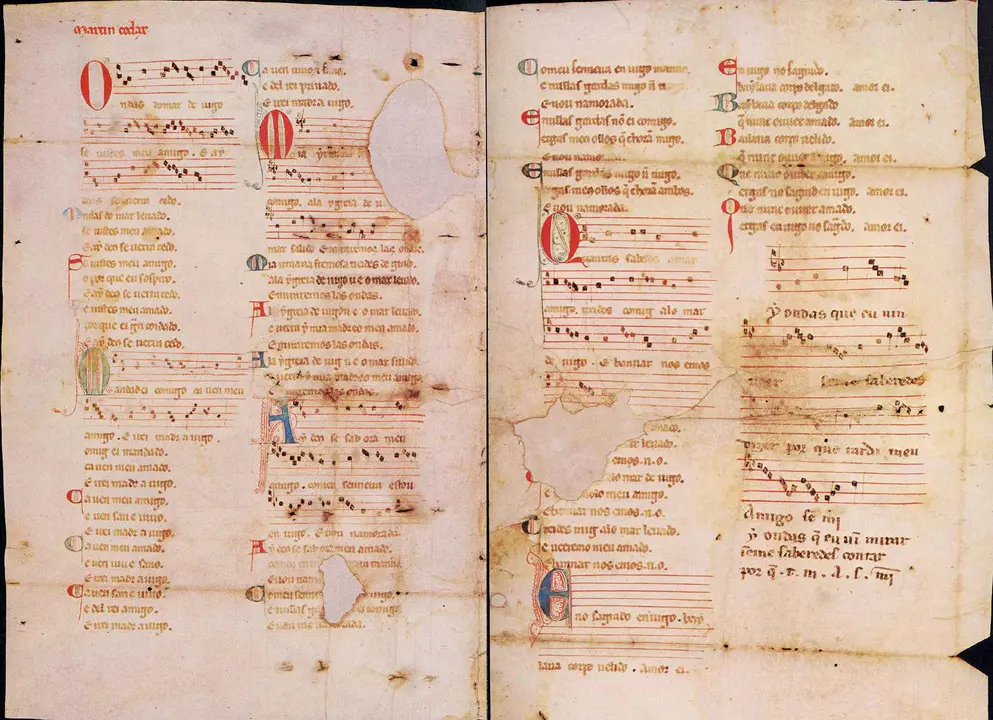 Martin codax
Ondas do mar de uigo
se uistes meu amigo. E ay
deus se uerra cedo.
Ondas do mar leuado.
se uistes meu amado.
E ay deo se uerra cedo.
Se uistes meu amigo.
o por que eu sospiro.
E ay deo se uerra cedo.
Se uistes meu amado.
por que ei gran coidado.
E ay deo se uerra cedo.
Mandad ei comigo ca uen meu
amigo. E irei madr a uigo.
Comig ei mandado.
ca uen meu amado.
E irei madr a uigo.
Ca uen meu amigo.
e uen san e uiuo.
E irei madr a uigo.
Ca uen meu amado.
e uen uiu e sano.
E irei madr a uigo.
Ca uen san e uiuo.
e del rei amigo.
E irei madr a uigo.
Ca uen uiuo e sano.
e del rei priuado.
E irei madr a uigo.
Mia yrmana
comigo. ala ygreia de u
mar salido E miraremos las ondas.
Mia irmana fremosa treides de grado.
ala ygreia de uigo u e o mar leuado.
E miraremos las ondas.
A la ygreia de uigo u e o mar leuado.
e uerra y mia madre o meu amado.
E miraremos las ondas.
A la ygreia de uig u e o mar salido.
e uerra y mia madre o meu amigo.
E miraremos las ondas.
Ay deo se sab ora meu
amigo. comeu senneira estou
en uigo. E uou namorada.
Ay deo se sab ora meu amado.
en uigo manno.
E uou nam
Comeu senneira
e nullas gar comigo
E uou namorada.
Comeu senneira en uigo manno.
e nullas gardas migo non
E uou namorada.
E nullas gardas non ei comigo.
ergas meus ollos que choran migo.
E uou namorada.
E nullas gardas migo non trago.
ergas meus ollos que choran ambos.
E uou namorada.
Quantas sabedes amar
amigo. treides comig alo mar
de uigo. E bannar nos emos
amado.
mar leuado.
emos.n.o.
alo mar de uigo.
meu amigo.
E bannar nos emos.n.o.
Treides mig alo mar leuado.
e ueeremo meu amado.
E bannar nos emos.n.o.
E no sagrado en uigo. bay
laua corpo uelido. amor ei.
En uigo no sagrado.
baylaua corpo delgado. amor ei.
Baylaua corpo delgado
que nunc ouuer amado. amor ei.
Bailaua corpo uelido.
que nunc ouuer amigo. amor ei.
Que nunc ouuer amigo.
ergas no sagrad en uigo. amor ei.
Que nunc ouuer amado.
ergas en uigo no sagrado. amor ei.
Ay ondas que eu uin
ueer se me saberedes
dizer por que tarda meu
Amigo se mi
Ay ondas que eu uin mirar
se me saberedes contar
por q. t. m. A. s. mi